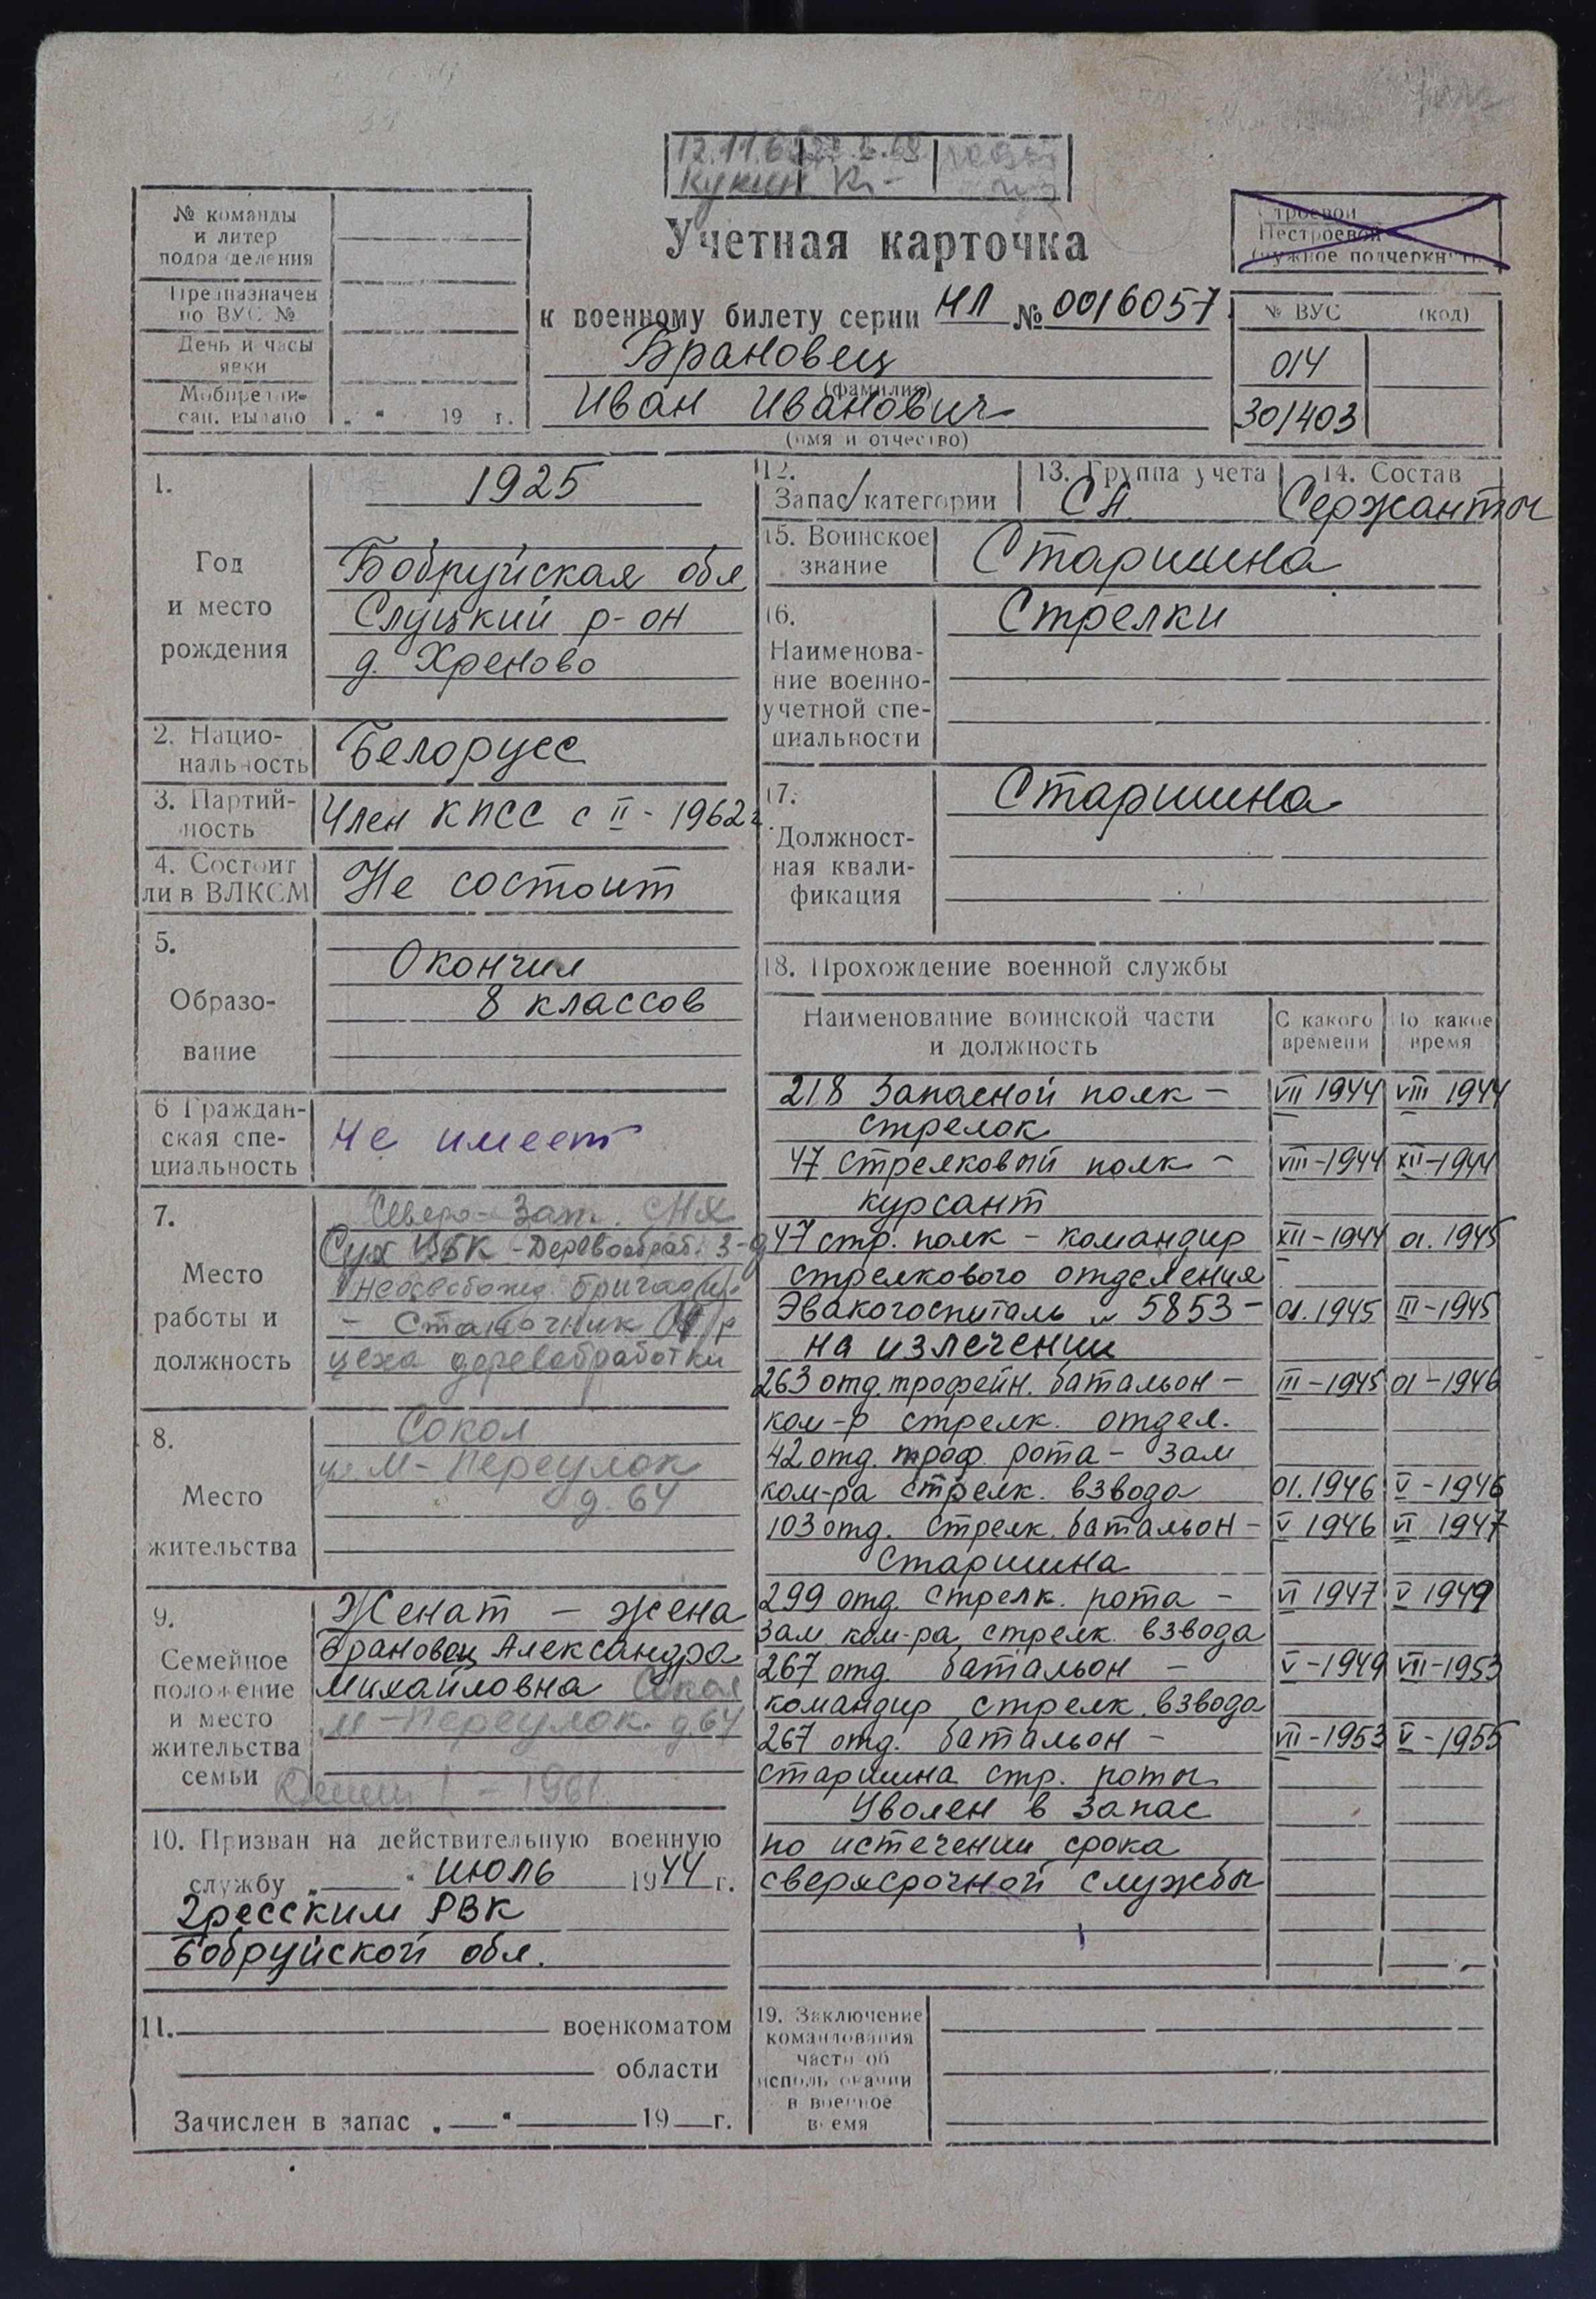 12.11.6
Кукин
№ команды
и литер
подразделения
Предназначен
по ВУС №
День и часы
явки
Мобпредпи-
сан. выдано „ “ 19 г.
Учетная карточка
к военному билету серии НЛ № 0016057
Брановец
(фамилия)
Иван Иванович
(имя и отчество)
Строевой
Нестроевой
(нужное подчеркнуть)
№ ВУС (код)
014
301403
1.
Год
и место
рождения
1925
Бобруйская обл
Слуцкий р-он
д. Хреново
2. Нацио-
нальность
Белорусс
3. Партий-
ность
Член КПСС с II - 1962 г.
4. Состоит
ли в ВЛКСМ
Не состоит
5.
Образо-
вание
Окончил
8 классов
6 Граждан-
ская спе-
циальность
Не имеет
7.
Место
работы и
должность
Северо-Зап. СНХ
Сух ЦБК - Деревообраб. з-д
Неосвобожд. бригадир
- Станочник
цеха деревобработки
8.
Место
жительства
Сокол
М-Переулок
д. 64
9.
Семейное
положение
и место
жительства
семьи
Женат - жена
Брановец Александра
Михайловна Сокол
М-Переулок д. 64
- 1961
10. Призван на действительную военную
службу „ “ июль 1944 г.
Гресским РВК
Бобруйской обл.
11. военкоматом
области
Зачислен в запас „ “ 19 г.
12.
Запас/категории
13. Группа учета
СА
14. Состав
Сержанты
15. Воинское
звание
Старшина
16.
Наименова-
ние военно-
учетной спе-
циальности
Стрелки
17.
Должност-
ная квали-
фикация
Старшина
18. Прохождение военной службы
Наименование воинской части
и должность
С какого
времени
По какое
время
218 Запасной полк - VII 1944 VIII 1944
стрелок
47 стрелковый полк - VIII-1944 XII-1944
курсант
47 стр. полк - командир XII-1944 01.1945
стрелкового отделения
Эвакогоспиталь № 5853 - 01.1945 III-1945
на излечении
263 отд. трофейн. батальон - III-1945 01-1946
ком-р стрелк. отдел.
42 отд. троф. рота - зам
ком-ра стрелк. взвода 01.1946 V-1946
103 отд. стрелк. батальон - V 1946 VI 1947
старшина
299 отд. стрелк. рота - VI 1947 V 1949
зам. ком-ра стрелк. взвода
267 отд. батальон - V-1949 VII-1953
командир стрелк. взвода
267 отд. батальон - VII-1953 V-1955
старшина стр. роты
Уволен в запас
по истечении срока
сверхсрочной службы
19. Заключение
командования
части об
использовании
в военное
время